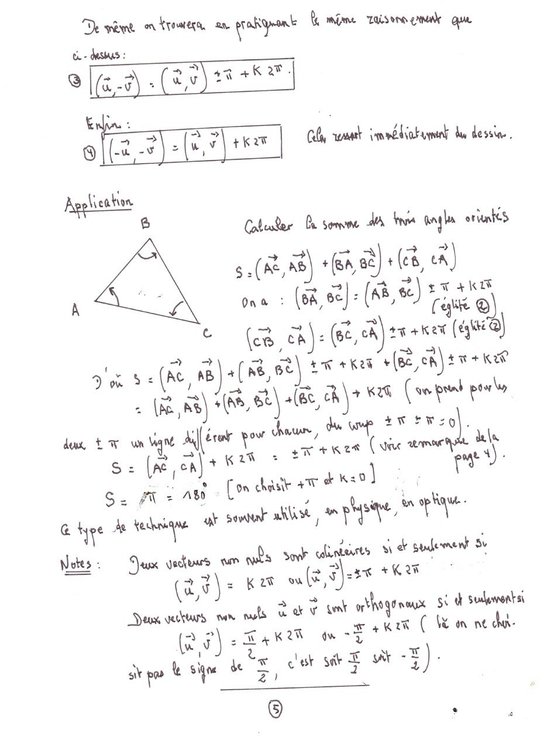 De même on trouvera en pratiquant le même raisonnement que
ci-dessus :
③ (u⃗, -v⃗) = (u⃗, v⃗) ± π + K2π.
Enfin :
④ (-u⃗, -v⃗) = (u⃗, v⃗) + K2π Cela ressort immédiatement du dessin.
Application
B
A
C
Calculer la somme des trois angles orientés
S = (AC⃗, AB⃗) + (BA⃗, BC⃗) + (CB⃗, CA⃗)
on a : (BA⃗, BC⃗) = (AB⃗, BC⃗) ± π + K2π
(églité ②)
(CB⃗, CA⃗) = (BC⃗, CA⃗) ± π + K2π (églité ②)
D'où S = (AC⃗, AB⃗) + (AB⃗, BC⃗) ± π + K2π + (BC⃗, CA⃗) ± π + K2π
= (AC⃗, AB⃗) + (AB⃗, BC⃗) + (BC⃗, CA⃗) + K2π (on prend pour les
deux ± π un signe différent pour chacun, du coup ± π ± π = 0).
S = (AC⃗, CA⃗) + K2π = ± π + K2π (voir remarque de la
page 4).
S = π = 180° [on choisit + π et K = 0]
Ce type de technique est souvent utilisé, en physique, en optique.
Notes : Deux vecteurs non nuls sont colinéaires si et seulement si
(u⃗, v⃗) = K2π ou (u⃗, v⃗) = ± π + K2π
Deux vecteurs non nuls u⃗ et v⃗ sont orthogonaux si et seulement si
(u⃗, v⃗) = π/2 + K2π ou -π/2 + K2π (là on ne choi-
sit pas le signe de π/2, c'est soit π/2 soit -π/2).
⑤